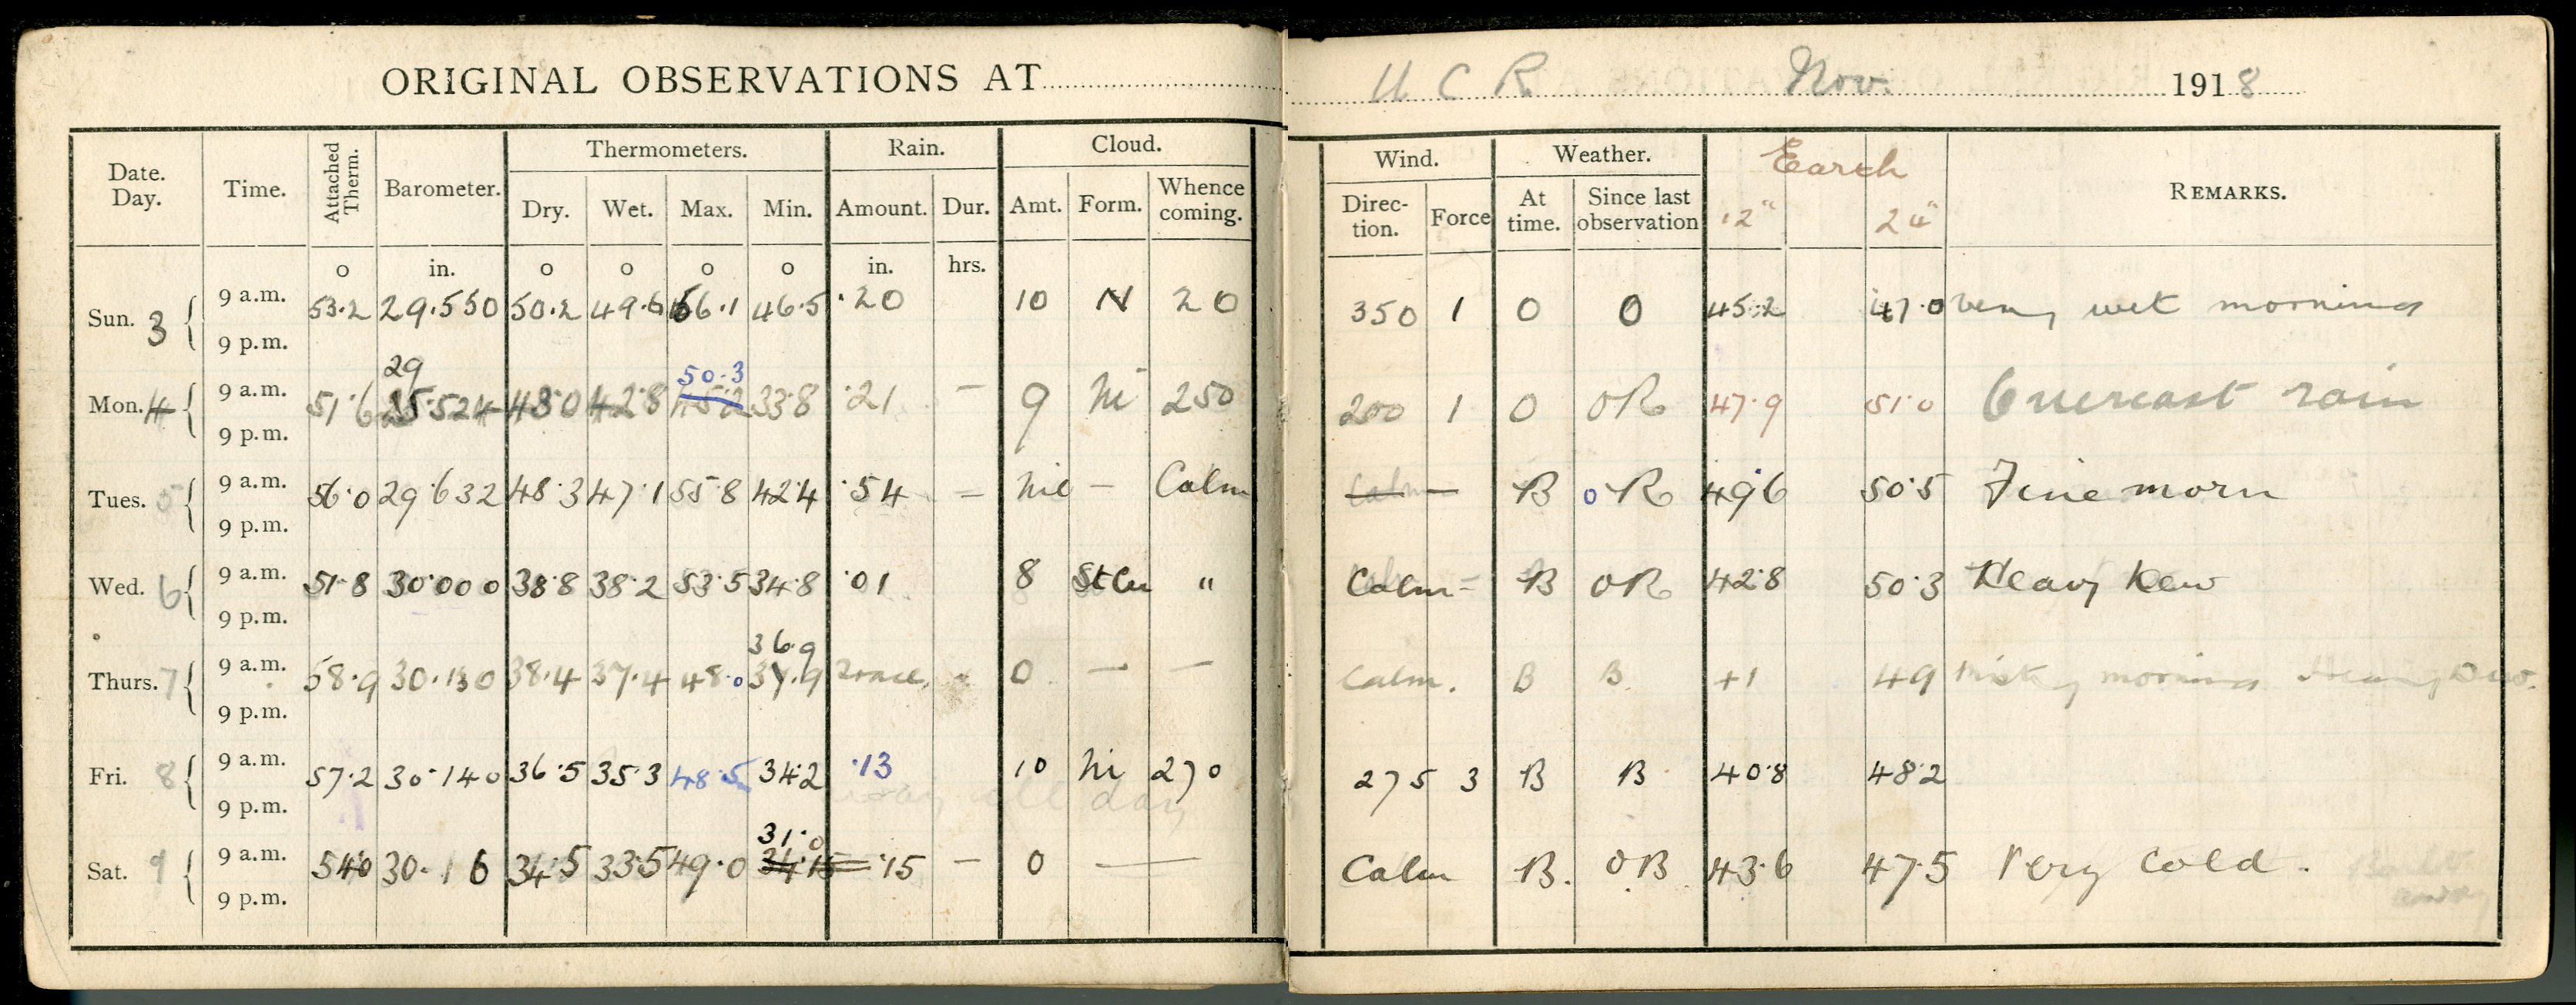 ORIGINAL OBSERVATIONS AT U C R Nov. 1918
Date. Day. Time. Attached Therm. Barometer. Thermometers. Rain. Cloud. Wind. Weather. Earth REMARKS.
Dry. Wet. Max. Min. Amount. Dur. Amt. Form. Whence coming. Direction. Force At time. Since last observation 12" 24"
o in. o o o o in. hrs.
Sun. 3 9 a.m. 53.2 29.550 50.2 49.6 56.1 46.5 .20 10 N 20 350 1 O O 45.2 47.0 very wet morning
9 p.m.
29 50.3
Mon. 4 9 a.m. 51.6 25.524 43.0 42.8 45.2 33.8 .21 — 9 Ni 250 200 1 O OR 47.9 51.0 Overcast rain
9 p.m.
Tues. 5 9 a.m. 56.0 29.632 48.3 47.1 55.8 42.4 .54 — Nil — Calm Calm — B oR 49.6 50.5 Fine morn
9 p.m.
Wed. 6 9 a.m. 51.8 30.000 38.8 38.2 53.5 34.8 .01 8 StCu " Calm - B OR 42.8 50.3 Heavy Dew
9 p.m.
36.9
Thurs. 7 9 a.m. 58.9 30.130 38.4 37.4 48.0 37.9 Trace. " 0 — — Calm. B B. 41 49 Misty morning Heavy Dew.
9 p.m.
Fri. 8 9 a.m. 57.2 30.140 36.5 35.3 48.5 34.2 .13 10 Ni 270 275 3 B B 40.8 48.2
9 p.m. all day
31.0
Sat. 9 9 a.m. 54.0 30.16 34.5 33.5 49.0 34.15 .15 — 0 — Calm B. OB 43.6 47.5 Very Cold.
9 p.m.